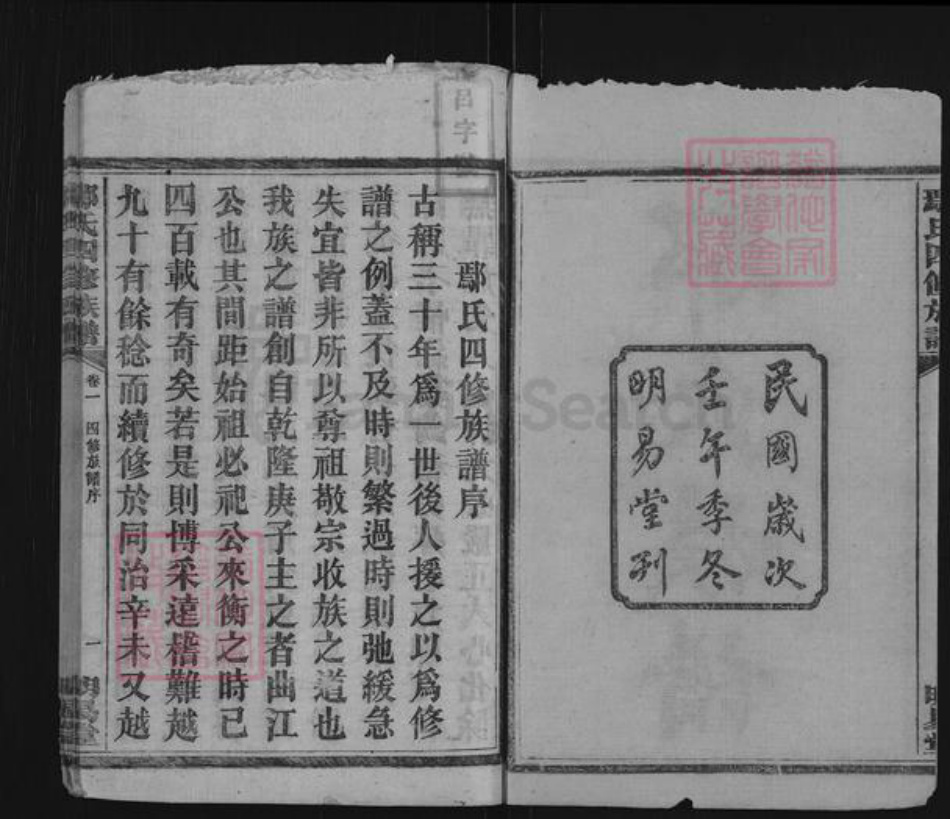 鄢氏四修族譜
明易堂
民國歲次
壬午季冬
明易堂刊
呂字
鄢氏四修族譜序
古稱三十年爲一世後人援之以爲修
譜之例蓋不及時則繁過時則弛緩急
失宜皆非所以尊祖敬宗收族之道也
我族之譜創自乾隆庚子主之者曲江
公也其間距始祖必祀公來衡之時已
四百載有奇矣若是則博采遠稽難越
九十有餘稔而續修於同治辛未又越
鄢氏四修族譜
卷一
四修族譜序
一
明易堂